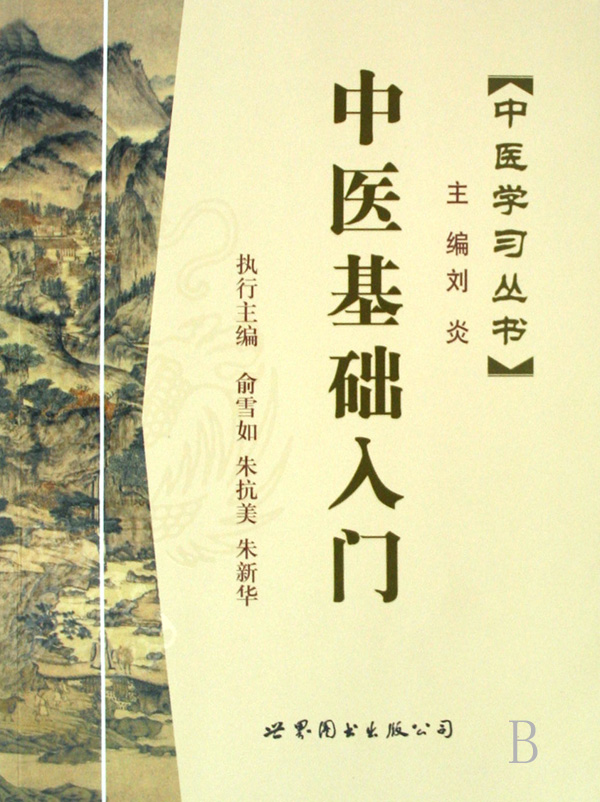 【中医学习丛书】
主编 刘炎
中医基础入门
执行主编 俞雪如 朱抗美 朱新华
世界图书出版公司
B